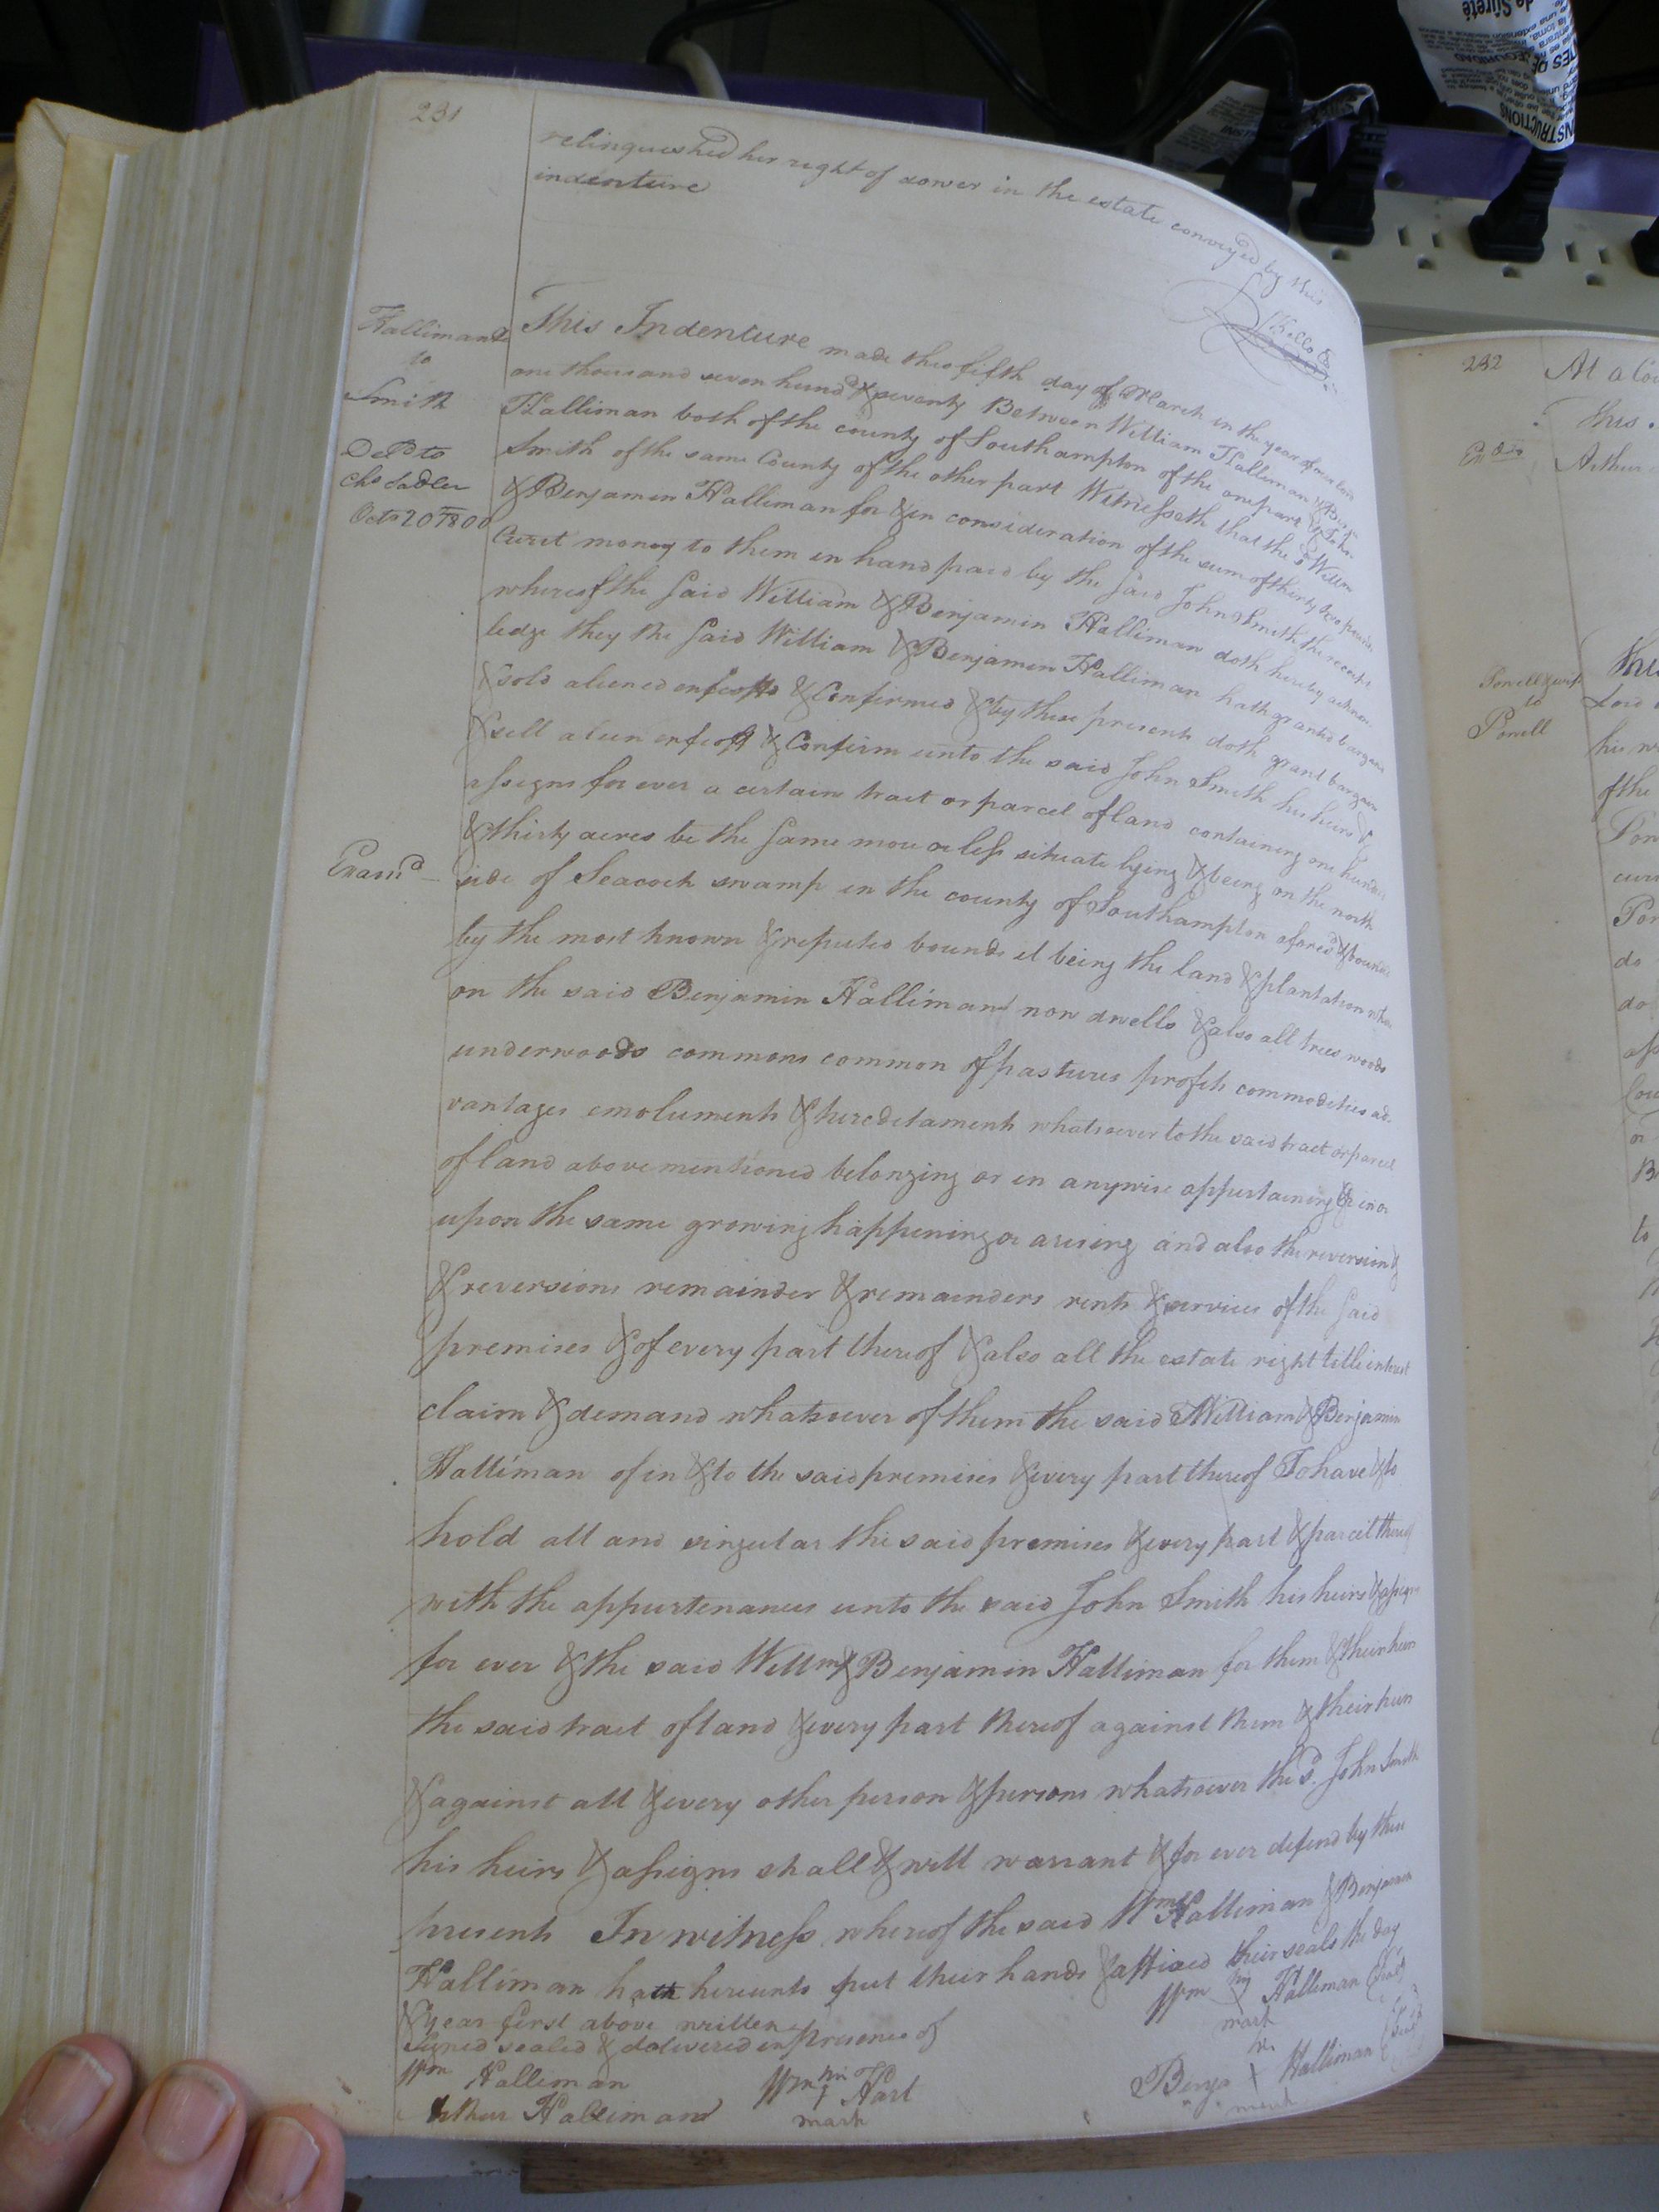 231
relinquished her right of dower in the estate conveyed by this
indenture
Hallimans
to
Smith
Deld to
Chs Sadler
Octo 20 1800
Exam'd
This Indenture made this fifth day of March in the year of our Lord
one thousand seven hund'd & seventy Between William Halliman & Benj
Halliman both of the county of Southampton of the one part & John
Smith of the same County of the other part Witnesseth that the sd Willm
& Benjamin Halliman for & in consideration of the sum of thirty pounds
Curt money to them in hand paid by the said John Smith the receipt
whereof the said William & Benjamin Halliman doth hereby acknow
ledge they the said William & Benjamin Halliman hath granted bargain
& sold aliened enfeoff'd & Confirmed & by these presents doth grant bargain
& sell alien enfeoff & Confirm unto the said John Smith his heirs &
assigns for ever a certain tract or parcel of land containing one hundred
& thirty acres be the same more or less situate lying & being on the north
side of Seacock swamp in the county of Southampton aforesd & bounded
by the most known & reputed bounds it being the land & plantation where
on the said Benjamin Halliman now dwells & also all trees woods
underwoods commons common of pastures profits commodities ad-
vantages emoluments & hereditaments whatsoever to the said tract or parcel
of land above mentioned belonging or in anywise appertaining & in or
upon the same growing happening or arising and also the reversion &
& reversions remainder & remainders rents & services of the said
premises & of every part thereof & also all the estate right title interest
claim & demand whatsoever of them the said William & Benjamin
Halliman of in & to the said premises & every part thereof To have & to
hold all and singular the said premises & every part & parcel thereof
with the appurtenances unto the said John Smith his heirs & assigns
for ever & the said Willm & Benjamin Halliman for them & their heirs
the said tract of land & every part thereof against them & their heirs
& against all & every other person & persons whatsoever the sd. John Smith
his heirs & assigns shall & will warrant & for ever defend by these
presents In witness whereof the said Wm Halliman & Benjamin
Halliman hath hereunto put their hands & affixed their seals the day
& year first above written
Signed sealed & delivered in presence of
Wm his Halliman (seal)
mark
Wm Halliman
Wm his Hart
mark
Arthur Halliman
Benja his Halliman (seal)
mark
232
At a Cou
this
Exd
Arthur
Powell & wife
to
Powell
This
Lord
his w
of the
Pow
curr
Pow
do
do
ap
Cou
or
Be
to